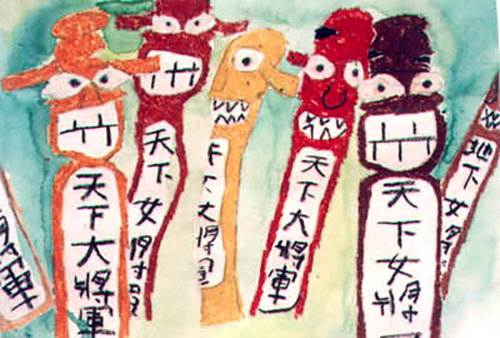 將軍
天下大將軍
天下女
下大
天下大將軍
天下女
地下女